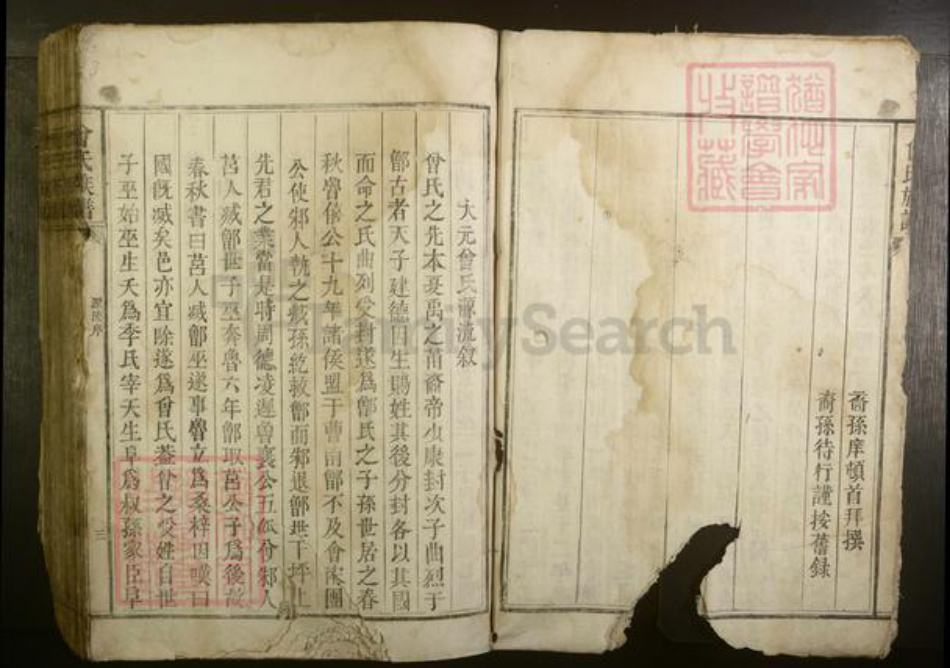 曾氏族譜
裔孫庠頓首拜撰
裔孫待行謹按舊錄
大元曾氏源流叙
曾氏之先本夏禹之苗裔帝少康封次子曲烈于
鄫古者天子建德因生賜姓其後分封各以其國
而命之氏曲列受封遂爲鄫氏之子孫世居之春
秋魯僖公十九年諸侯盟于曹南鄫不及會
公使邾人執之臧孫紇救鄫而邾退鄫世子
先君之業當是時周德凌遲魯襄公五年份邾人
莒人滅鄫世子巫奔魯六年鄫取莒公子爲後故
春秋書曰莒人滅鄫巫遂事魯立爲桑梓因嘆曰
國旣滅矣邑亦宜除遂爲曾氏葢曾之受姓自世
子巫始巫生夭爲季氏宰夭生阜爲叔孫家臣阜
曾氏族譜
源流序
三
譜學會
收藏
FamilySearch